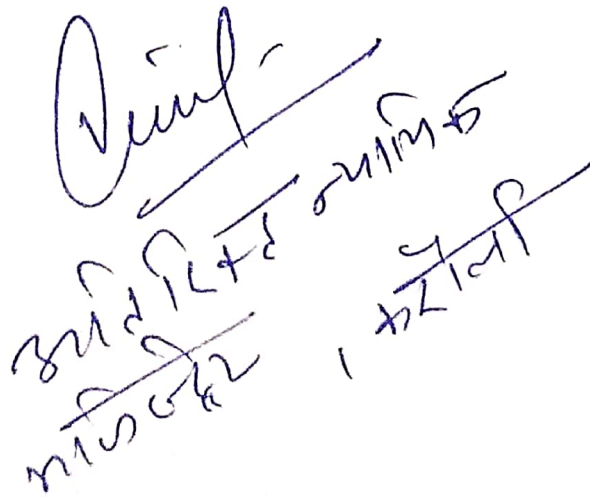 अतिरिक्त न्यायिक
मजिस्ट्रेट, करौली